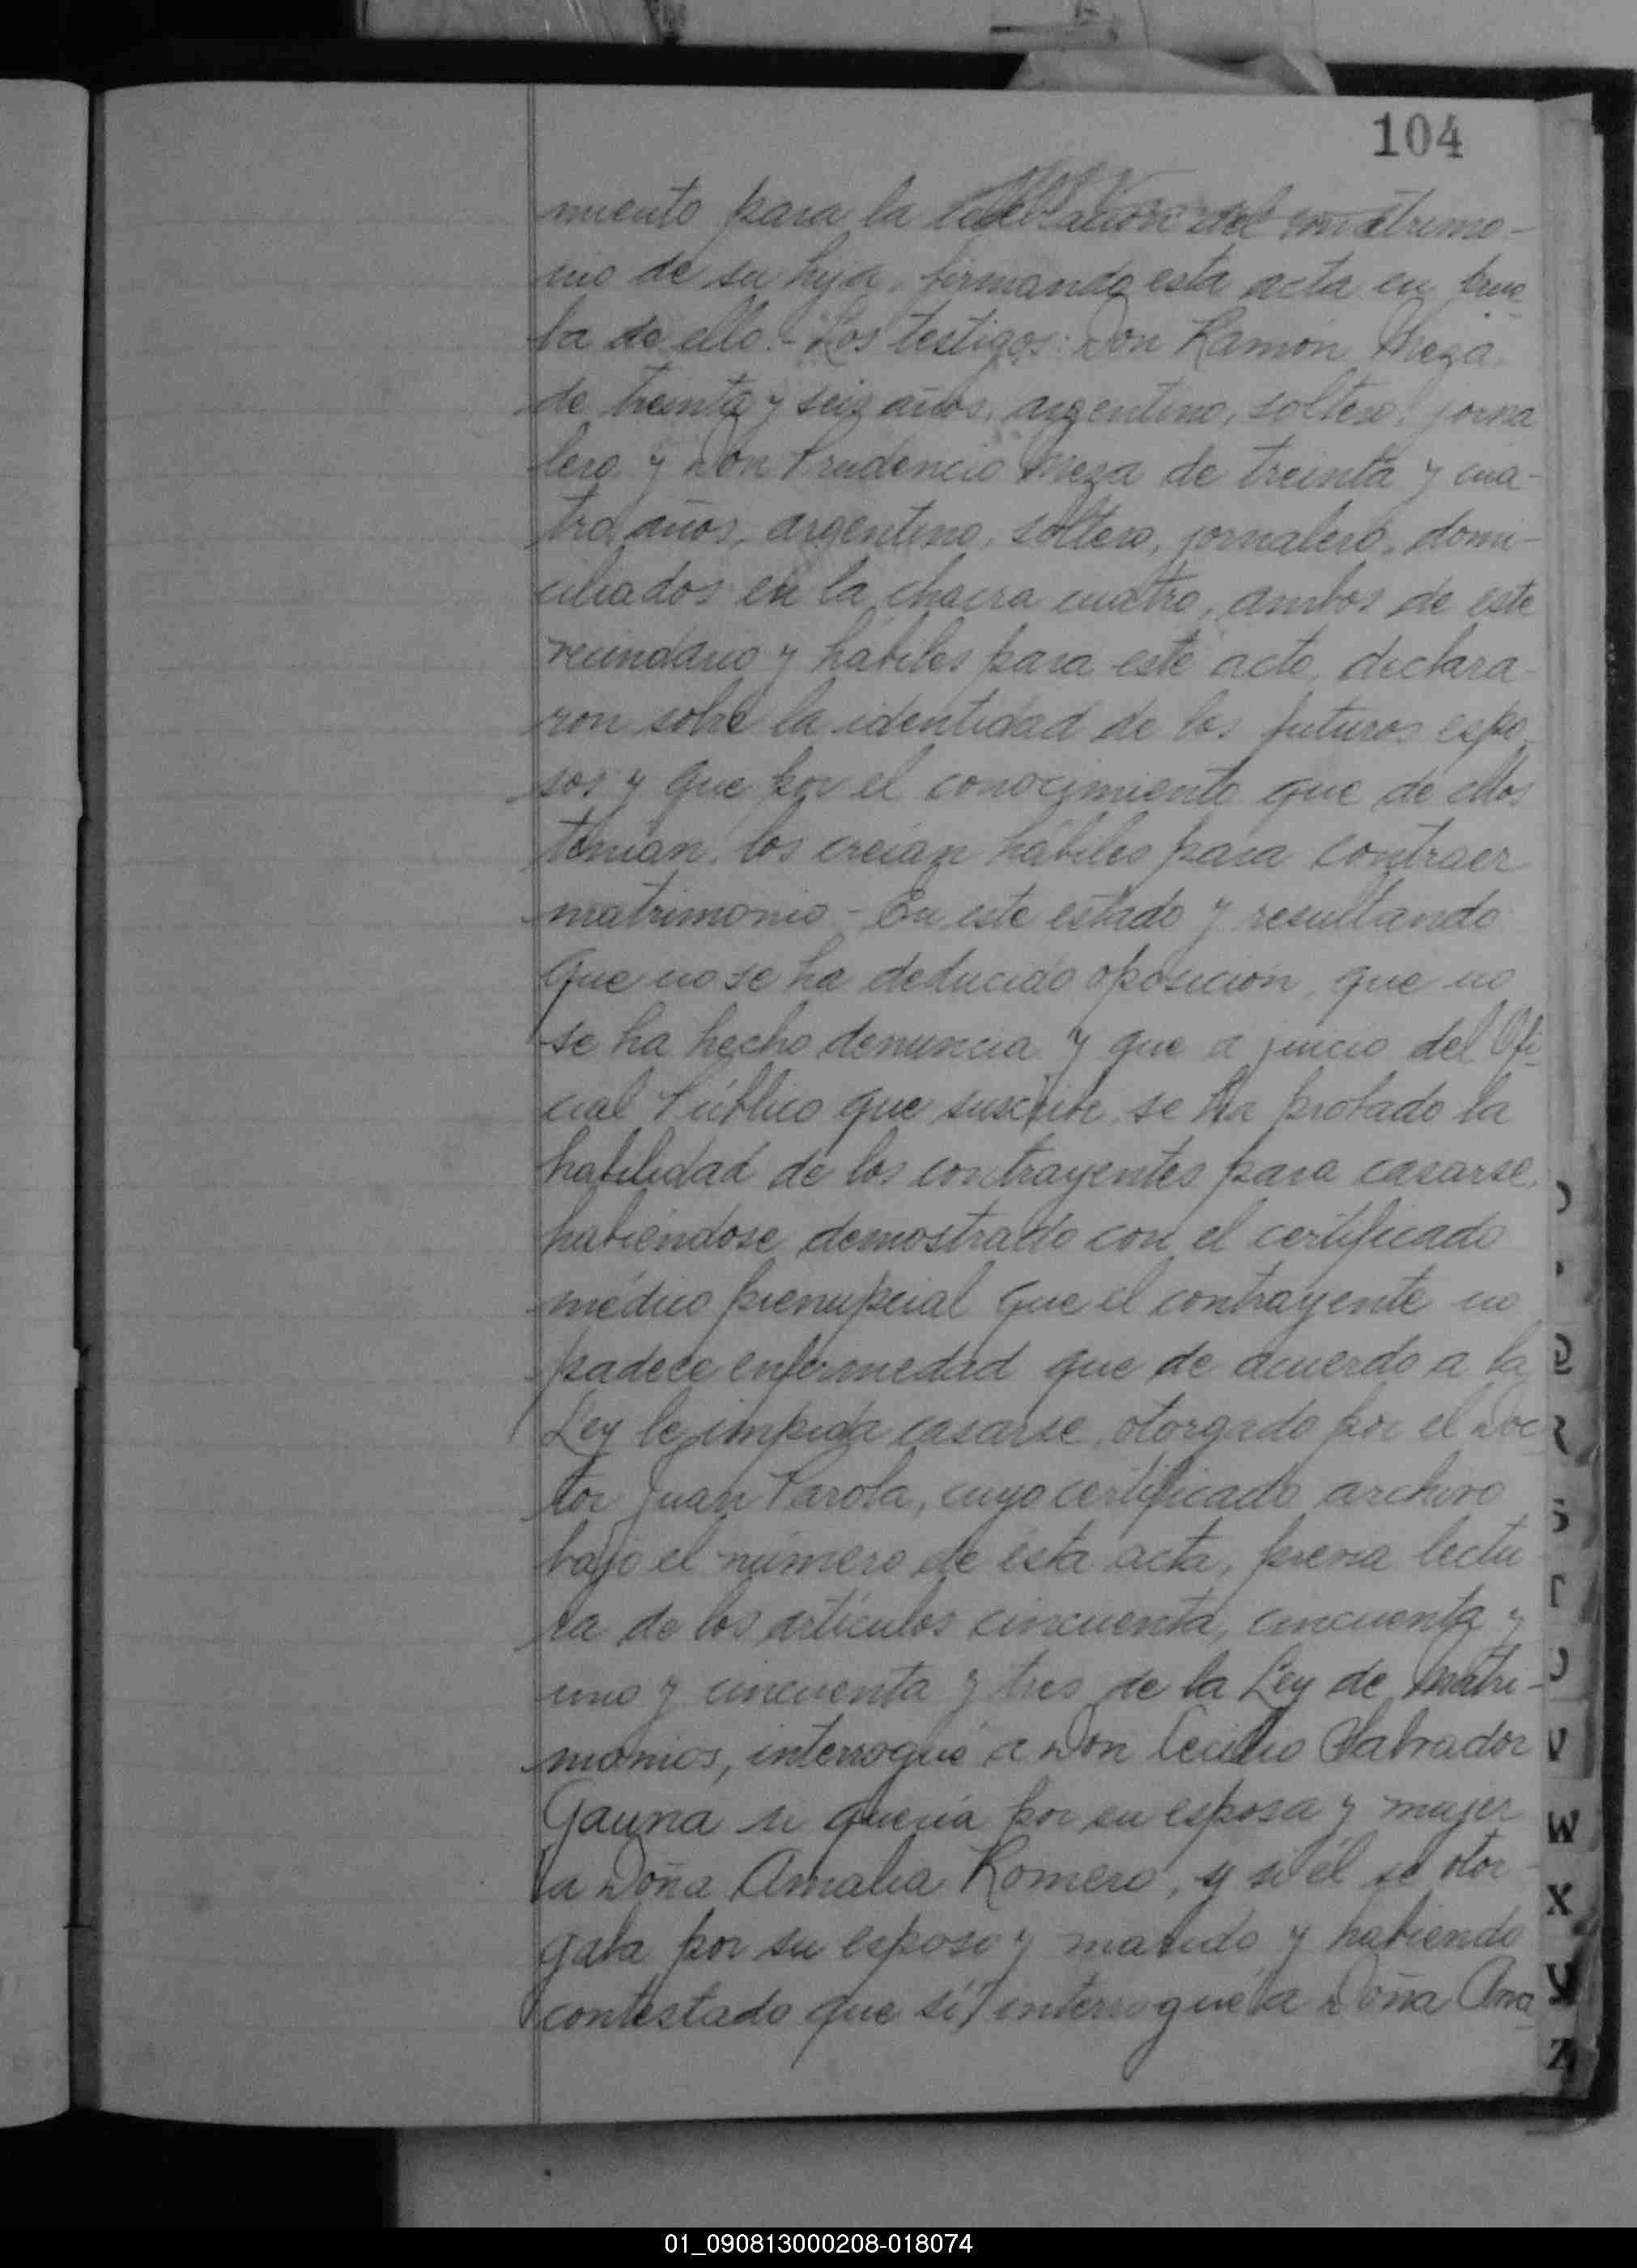 104
miento para la celebración del matrimo-
nio de su hija, firmando esta acta en prue-
ba de ello.- Los testigos: Don Ramón Meza
de treinta y seis años, argentino, soltero, jorna
lero y Don Prudencio Meza de treinta y cua-
tro años, argentino, soltero, jornalero, domi-
ciliados en la chacra cuatro, ambos de este
vecindario y hábiles para este acto, declara-
ron sobre la identidad de los futuros espo-
sos y que por el conocimiento que de ellos
tenian, los creían hábiles para contraer
matrimonio - En este estado y resultando
que no se ha deducido oposición, que no
se ha hecho denuncia y que a juicio del Ofi-
cial Público que suscribe, se ha probado la
habilidad de los contrayentes para casarse,
habiéndose demostrado con el certificado
médico prenupcial que el contrayente no
padece enfermedad que de acuerdo a la
Ley le impida casarse, otorgado por el Doc-
tor Juan Parola, cuyo certificado archivo
bajo el número de esta acta, previa lectu
ra de los artículos cincuenta, cincuenta y
uno y cincuenta y tres de la Ley de Matri-
monios, interrogué a Don Cecilio Salvador
Gauna si quería por su esposa y mujer
a Doña Amalia Romero, y si él se otor-
gaba por su esposo y marido y habiendo
contestado que sí, interrogué a Doña Ama
R
S
T
U
V
W
X
Y
Z
01_090813000208-018074